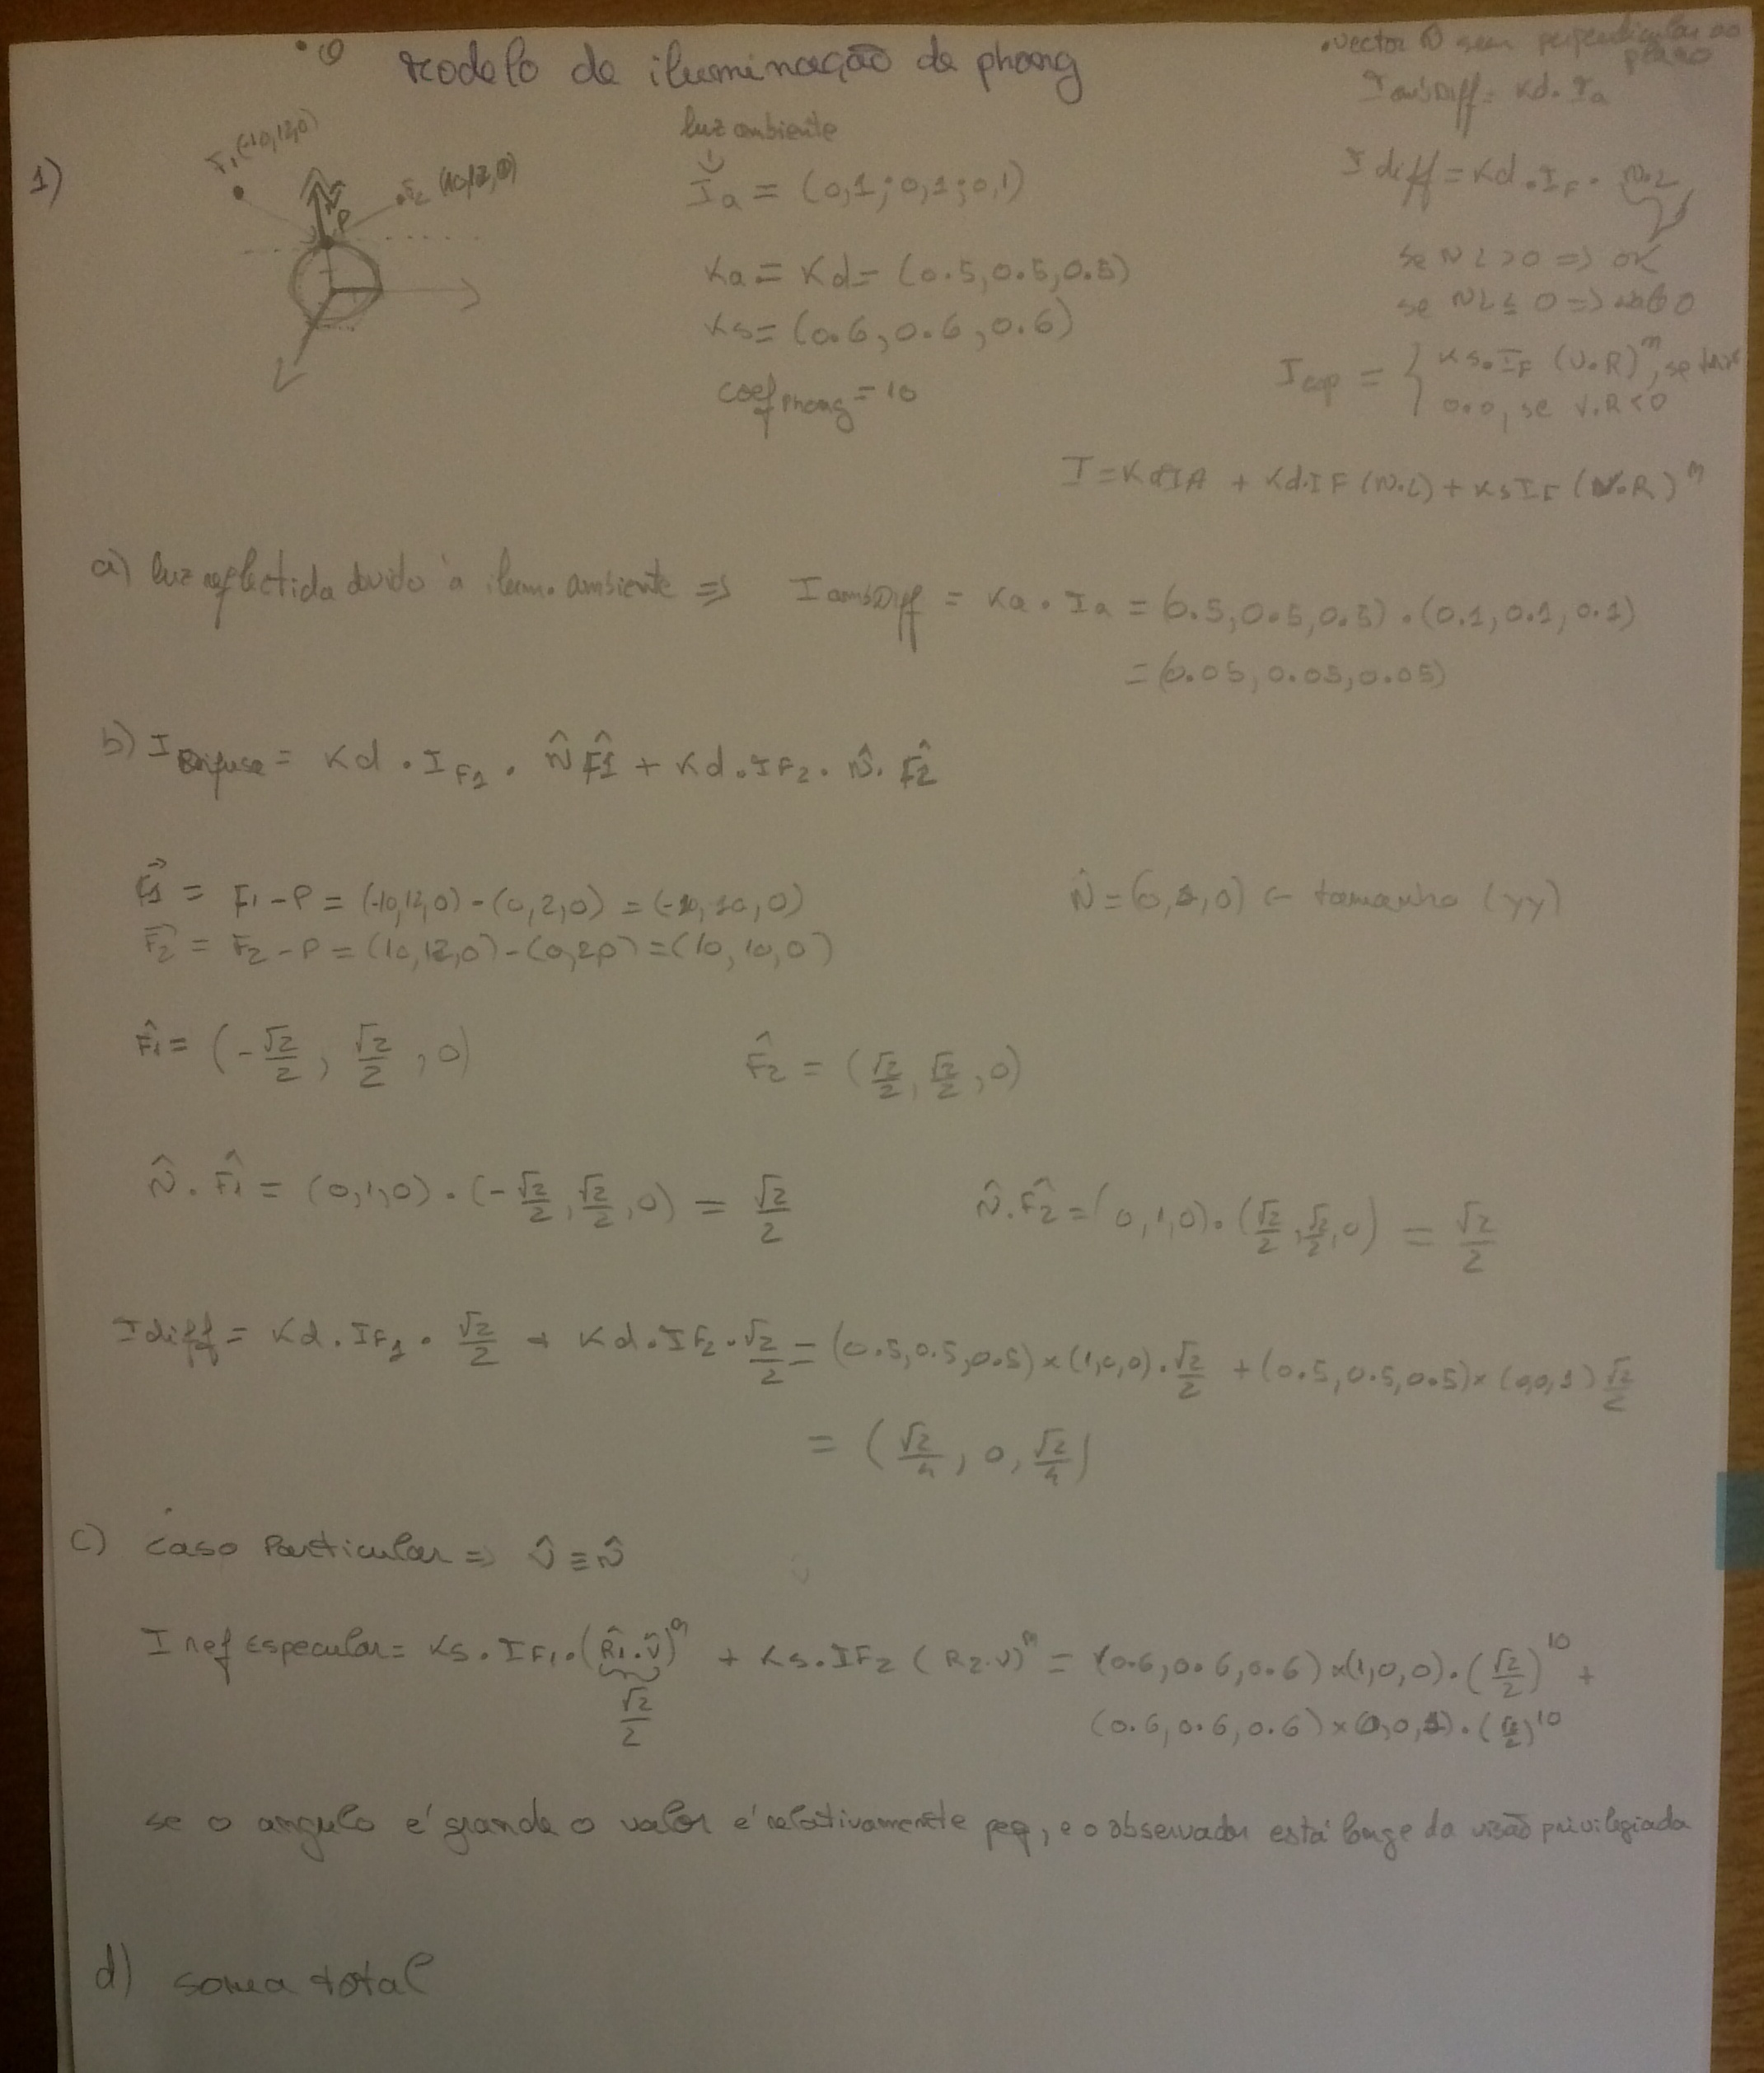 Modelo de iluminação de phong
• vector N sem perpendicular ao plano
I ambDiff = Kd . Ia
1)
F1 (-10,12,0)
N
P
F2 (10,12,0)
luz ambiente
Ia = (0,1 ; 0,1 ; 0,1)
Ka = Kd = (0.5, 0.5, 0.5)
Ks = (0.6, 0.6, 0.6)
coef phong = 10
I diff = Kd . IF . N.L
se NL > 0 => OK
se NL ≤ 0 => 0
I esp = { Ks. IF (V.R)^n, se
0.0, se V.R < 0
I = Kd IA + Kd.IF (N.L) + Ks IF (V.R)^n
a) luz reflectida devido à ilum. ambiente => I ambDiff = Ka . Ia = (0.5, 0.5, 0.5) . (0.1, 0.1, 0.1)
= (0.05, 0.05, 0.05)
b) I Difusa = Kd . I F1 . N̂ F̂1 + Kd . IF2 . N̂ . F̂2
F⃗1 = F1 - P = (-10,12,0) - (0,2,0) = (-10,10,0)
N̂ = (0,1,0) <- tamanho (yy)
F⃗2 = F2 - P = (10,12,0) - (0,2,0) = (10,10,0)
F̂1 = (-√2/2, √2/2, 0)
F̂2 = (√2/2, √2/2, 0)
N̂ . F̂1 = (0,1,0) . (-√2/2, √2/2, 0) = √2/2
N̂ . F̂2 = (0,1,0) . (√2/2, √2/2, 0) = √2/2
I diff = Kd . IF1 . √2/2 + Kd . IF2 . √2/2 = (0.5, 0.5, 0.5) x (1,0,0) . √2/2 + (0.5, 0.5, 0.5) x (0,0,1) √2/2
= (√2/4, 0, √2/4)
c) caso Particular => V̂ ≡ N̂
I ref Especular = Ks . IF1 . (R̂1 . V̂)^n + Ks . IF2 (R2.V)^n = (0.6, 0.6, 0.6) x (1,0,0) . (√2/2)^10 +
√2/2
(0.6, 0.6, 0.6) x (0,0,1) . (√2/2)^10
se o angulo é grande o valor é relativamente peq, e o observador está longe da visão privilegiada
d) soma total